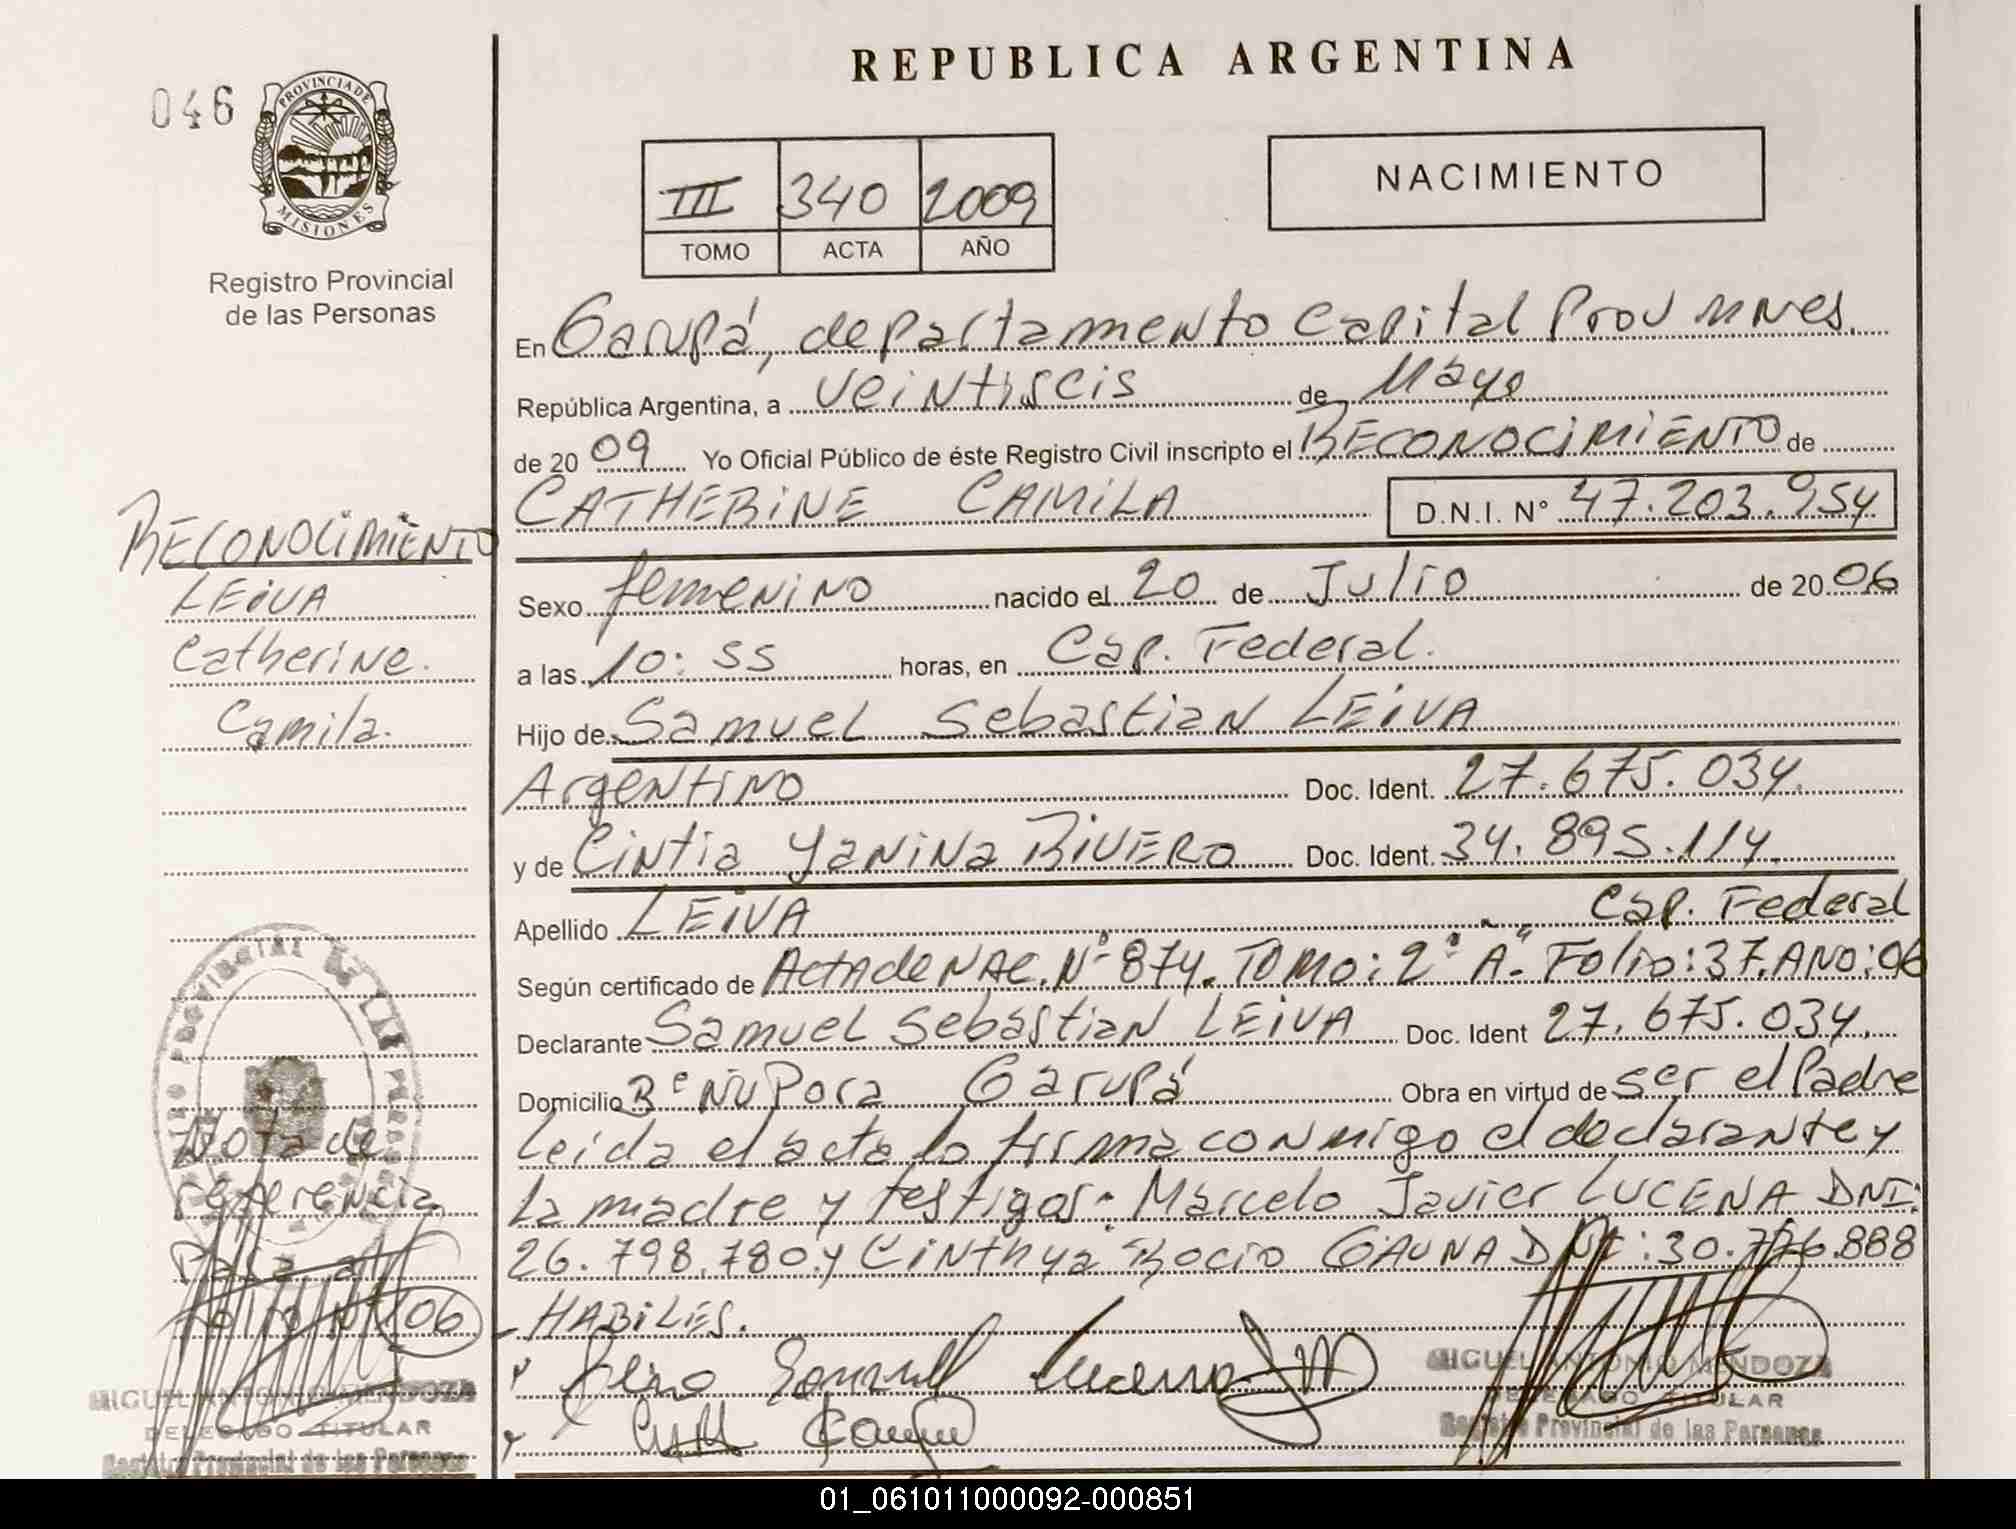 REPUBLICA ARGENTINA
046
PROVINCIA DE
MISIONES
Registro Provincial
de las Personas
III 340 2009
TOMO ACTA AÑO
NACIMIENTO
En Garupá, departamento Capital Prov Mnes.
República Argentina, a veintiseis de Mayo
de 2009 Yo Oficial Público de éste Registro Civil inscripto el RECONOCIMIENTO de
CATHERINE CAMILA D.N.I. Nº 47.203.954
RECONOCIMIENTO
LEIVA
Catherine.
Camila.
Sexo femenino nacido el 20 de Julio de 2006
a las 10:55 horas, en Cap. Federal.
Hijo de Samuel Sebastian LEIVA
Argentino Doc. Ident. 27.675.034.
y de Cintia Yanina RIVERO Doc. Ident. 34.895.114.
Apellido LEIVA Cap. Federal
Según certificado de Acta de NAC. Nº 874. TOMO: 2º A. Folio: 37. AÑO: 06
Declarante Samuel Sebastian LEIVA Doc. Ident 27.675.034.
Domicilio Bº ÑU Pora Garupá Obra en virtud de ser el Padre
Leida el acta lo firma conmigo el declarante y
la madre y testigos: Marcelo Javier LUCENA DNI:
26.798.780 y Cinthya Rocio GAUNA DNI: 30.776.888
- HABILES.
Nota de
referencia
Pasa al
folio Nº 106
MIGUEL ANTONIO MENDOZA
DELEGADO TITULAR
Registro Provincial de las Personas
MIGUEL ANTONIO MENDOZA
DELEGADO TITULAR
Registro Provincial de las Personas
01_061011000092-000851